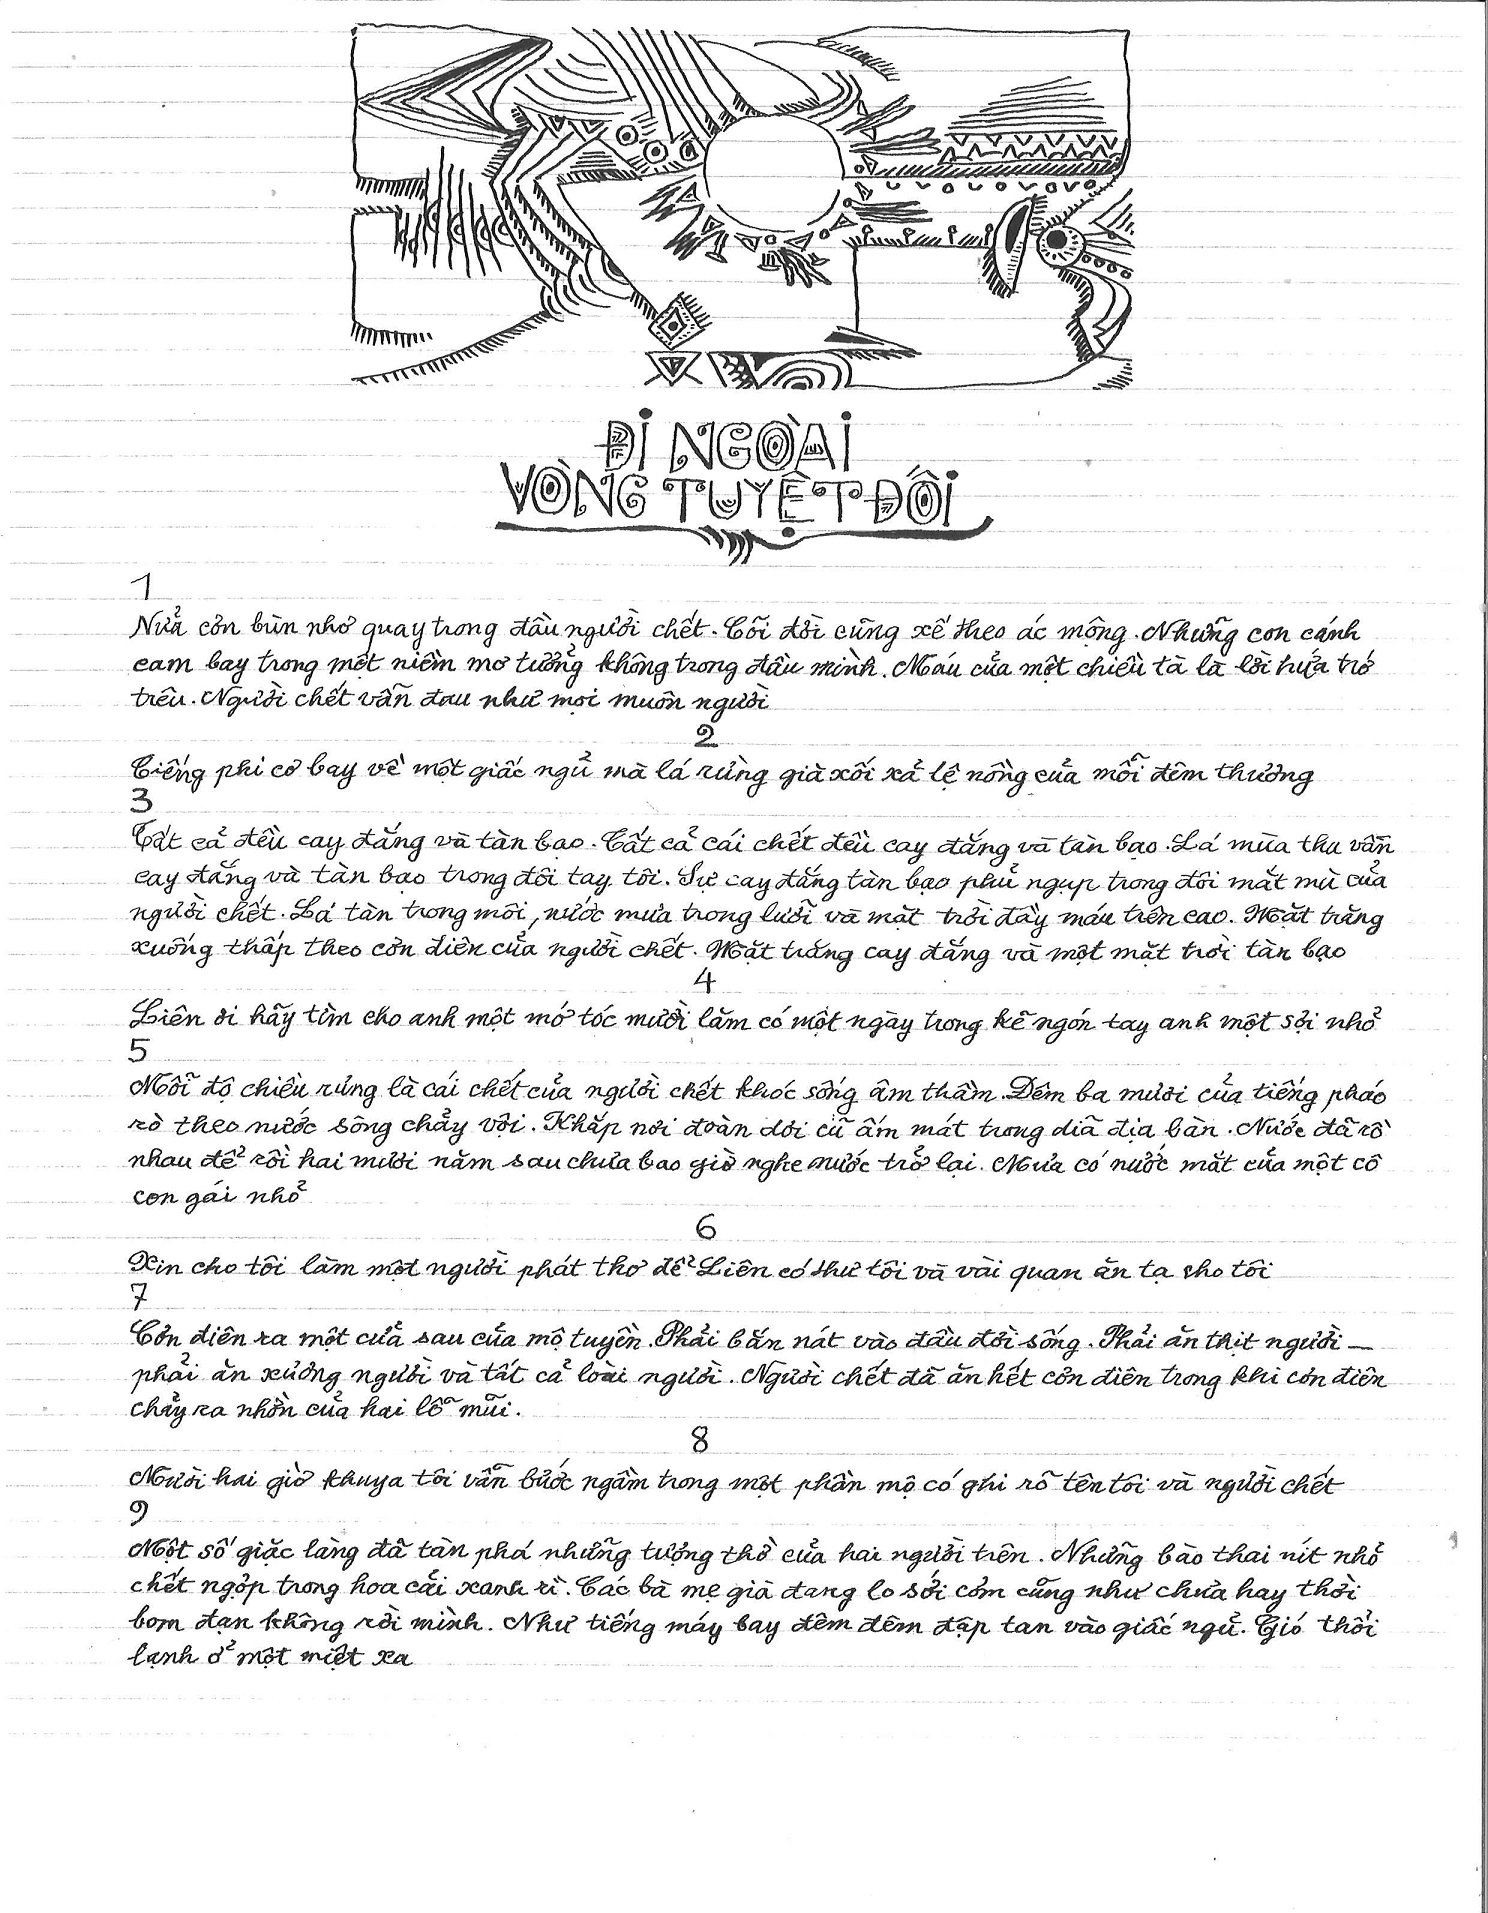 ĐI NGOÀI
VÒNG TUYỆT ĐỐI
1
Nửa cơn bùn nhơ quay trong đầu người chết. Cõi đời cũng xế theo ác mộng. Những con cánh
cam bay trong một niềm mơ tưởng không trong đầu mình. Máu của một chiều tà là lời hứa trớ
trêu. Người chết vẫn đau như mọi muôn người
2
Tiếng phi cơ bay về một giấc ngủ mà lá rừng già xối xả lệ nồng của mỗi đêm thường
3
Tất cả đều cay đắng và tàn bạo. Tất cả cái chết đều cay đắng và tàn bạo. Lá mùa thu vẫn
cay đắng và tàn bạo trong đôi tay tôi. Sự cay đắng tàn bạo phủ ngụp trong đôi mắt mù của
người chết. Lá tàn trong môi, nước mưa trong lưỡi và mặt trời đầy máu trên cao. Mặt trăng
xuống thấp theo cơn điên của người chết. Mặt trăng cay đắng và một mặt trời tàn bạo
4
Liên ơi hãy tìm cho anh một mớ tóc mười lăm có một ngày trong kẽ ngón tay anh một sợi nhỏ
5
Mỗi độ chiều rừng là cái chết của người chết khóc sống âm thầm. Đêm ba mươi của tiếng pháo
rò theo nước sông chảy vội. Khắp nơi đoàn dơi cũ ấm mát trong dĩa địa bàn. Nước đã rồ
nhau để rồi hai mươi năm sau chưa bao giờ nghe nước trở lại. Mưa có nước mắt của một cô
con gái nhỏ
6
Xin cho tôi làm một người phát thơ để Liên có thư tôi và vài quan ăn tạ cho tôi
7
Cơn điên ra một cửa sau của mộ tuyền. Phải bắn nát vào đầu đời sống. Phải ăn thịt người —
phải ăn xương người và tất cả loài người. Người chết đã ăn hết cơn điên trong khi cơn điên
chảy ra nhờn của hai lỗ mũi.
8
Mười hai giờ khuya tôi vẫn bước ngầm trong một phần mộ có ghi rõ tên tôi và người chết
9
Một số giặc làng đã tàn phá những tượng thờ của hai người trên. Những bào thai nít nhỏ
chết ngộp trong hoa cải xanh rì. Các bà mẹ già đang lo sới cơm cũng như chưa hay thời
bom đạn không rời mình. Như tiếng máy bay đêm đêm đập tan vào giấc ngủ. Gió thổi
lạnh ở một miệt xa